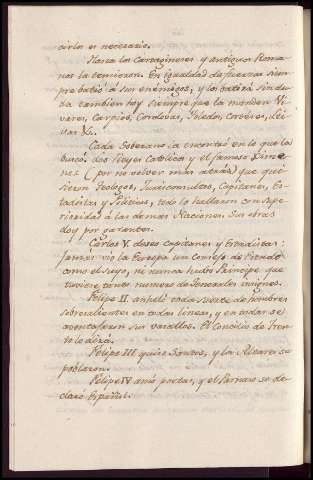 cirlo es necesario.
Hasta los Cartagineses y antiguos Roma-
nos la temieron. En igualdad de fuerzas siem-
pre batió a sus enemigos, y los batirá sin du-
da tambien hoy siempre que la manden Vi-
veros, Carpios, Cordovas, Toledos, Corteses, Lei-
vas &c.
Cada Soberano la encontró en lo que la
buscó. Los Reyes Catolicos y el famoso Xime-
nes (por no volver mas atrás) que qui-
sieron Teologos, Jurisconsultos, Capitanes, Es-
tadistas y Politicos, todo lo hallaron con supe-
rioridad a las demas Naciones. Sus obras
doy por garantes.
Carlos V. deseó capitanes y Estadistas:
jamas vio la Europa un Consejo de Estado
como el suyo, ni nunca hubo Principe que
tuviese tanto numero de Generales insignes.
Felipe II. anheló toda suerte de hombres
sobresalientes en todas lineas, y en todas se
aventajaron sus vasallos. El Concilio de Tren-
to lo dirá.
Felipe III quiso Santos, y los Altares se
poblaron.
Felipe IV amó poetas, y el Parnaso se de-
claró Español.